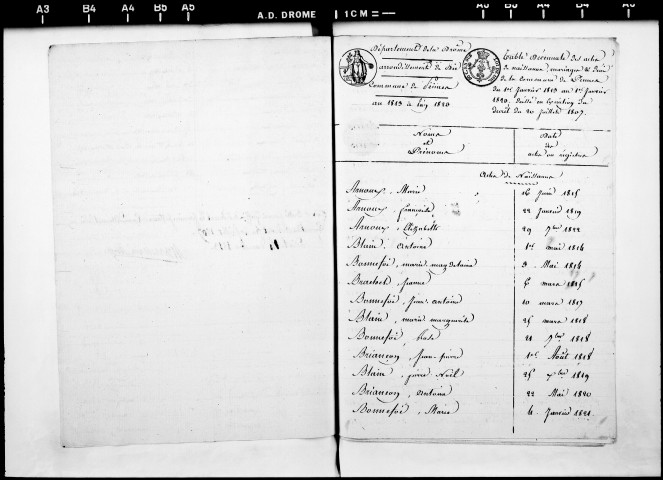 A3 B4 A4 B5 A5
A.D. DROME
1CM
A5 B5 A4 B4 A3
Département de la Drôme
arrondissement de Die
Commune de Pennes
an 1813 à l'an 1820
Table Décennale des actes
de naissance, mariages et décès
de la Commune de Pennes
du 1er Janvier 1813 au 1er Janvier
du
décret du 20 Juillet 1807.
Noms
et
Prénoms
Date
des
actes au registre
Actes de Naissance
Arnoux, Marie 16 Juin 1815
Arnoux, Françoise 22 Janvier 1819
Arnoux, Elizabeth 29 7bre 1822
Blain, Antoine 1er mai 1814
Bonnefoi, marie magdelaine 8 Mai 1814
Brachet, Jeanne 6 mars 1815
Bonnefoi, Jean antoine 10 mars 1817
Blain, marie marguerite 25 mars 1818
Bonnefoi, Rose 21 9bre 1818
Briançon, Jean pierre 1er Août 1818
Blain, pierre Noël 25 7bre 1819
Briançon, antoine 22 Mai 1820
Bonnefoi, Marie 4 Janvier 1821